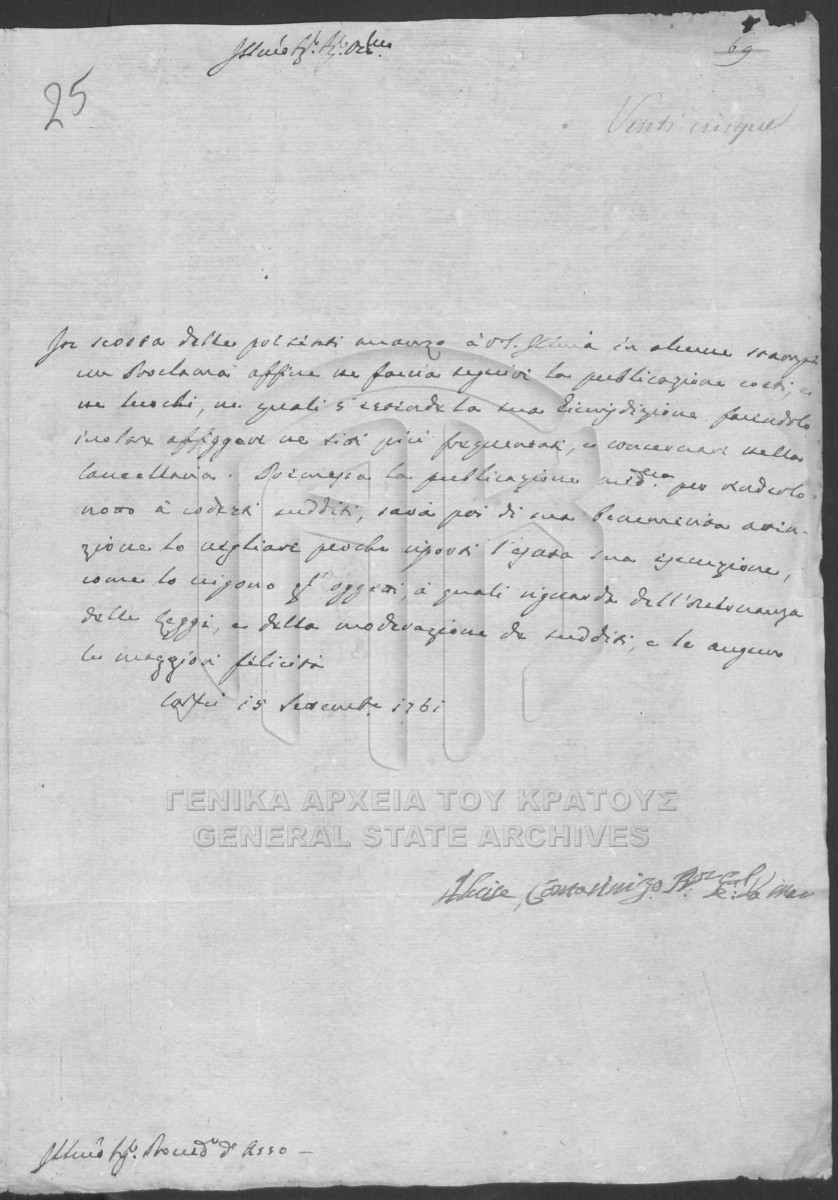 Illmo Sigr. Sigr. Osmo
69
25
Venti cinque
In scorta delle presenti avanzo à V.S. Illma in alcune stampe
un Proclama affine ne faccia seguire la publicazione costì, e
ne luochi, ne quali s'estende la sua Giurisdizione, facendolo
inoltre affiggere ne siti più frequentati, e conservare nella
Cancellaria. Premessa la publicazione medma per renderlo
noto à codesti sudditi, sarà poi di sua benemerita atten-
zione lo vegliare perche riporti l'esata sua esecuzione,
come lo vogono gl'oggetti, à quali riguarda dell'osservanza
delle Leggi, e della moderazione de sudditi, e le auguro
le maggiori felicità
Corfù 15 Settembre 1761
ΓΕΝΙΚΑ ΑΡΧΕΙΑ ΤΟΥ ΚΡΑΤΟΥΣ
GENERAL STATE ARCHIVES
Alvise Contarini
Illmo Sigr. Provedr di Asso